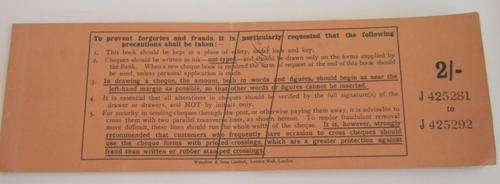 To prevent forgeries and frauds it is particularly requested that the following
precautions shall be taken:—
1. This book should be kept in a place of safety, under lock and key.
2. Cheques should be written in ink—not typed—and should be drawn only on the forms supplied by
the Bank. When a new cheque book is required the form of request at the end of this book should
be used, unless personal application is made.
3. In drawing a cheque, the amount, both in words and figures, should begin as near the
left-hand margin as possible, so that other words or figures cannot be inserted.
4. It is essential that all alterations in cheques should be verified by the full signature(s) of the
drawer or drawers, and NOT by initials only.
5. For security in sending cheques through the post, or otherwise paying them away, it is advisable to
cross them with two parallel transverse lines, as shown hereon. To render fraudulent removal
more difficult, these lines should run the whole width of the cheque. It is, however, strongly
recommended that customers who frequently have occasion to cross cheques should
use the cheque forms with printed crossings, which are a greater protection against
fraud than written or rubber stamped crossings.
Waterlow & Sons Limited, London Wall, London
2/-
J 425281
to
J 425292